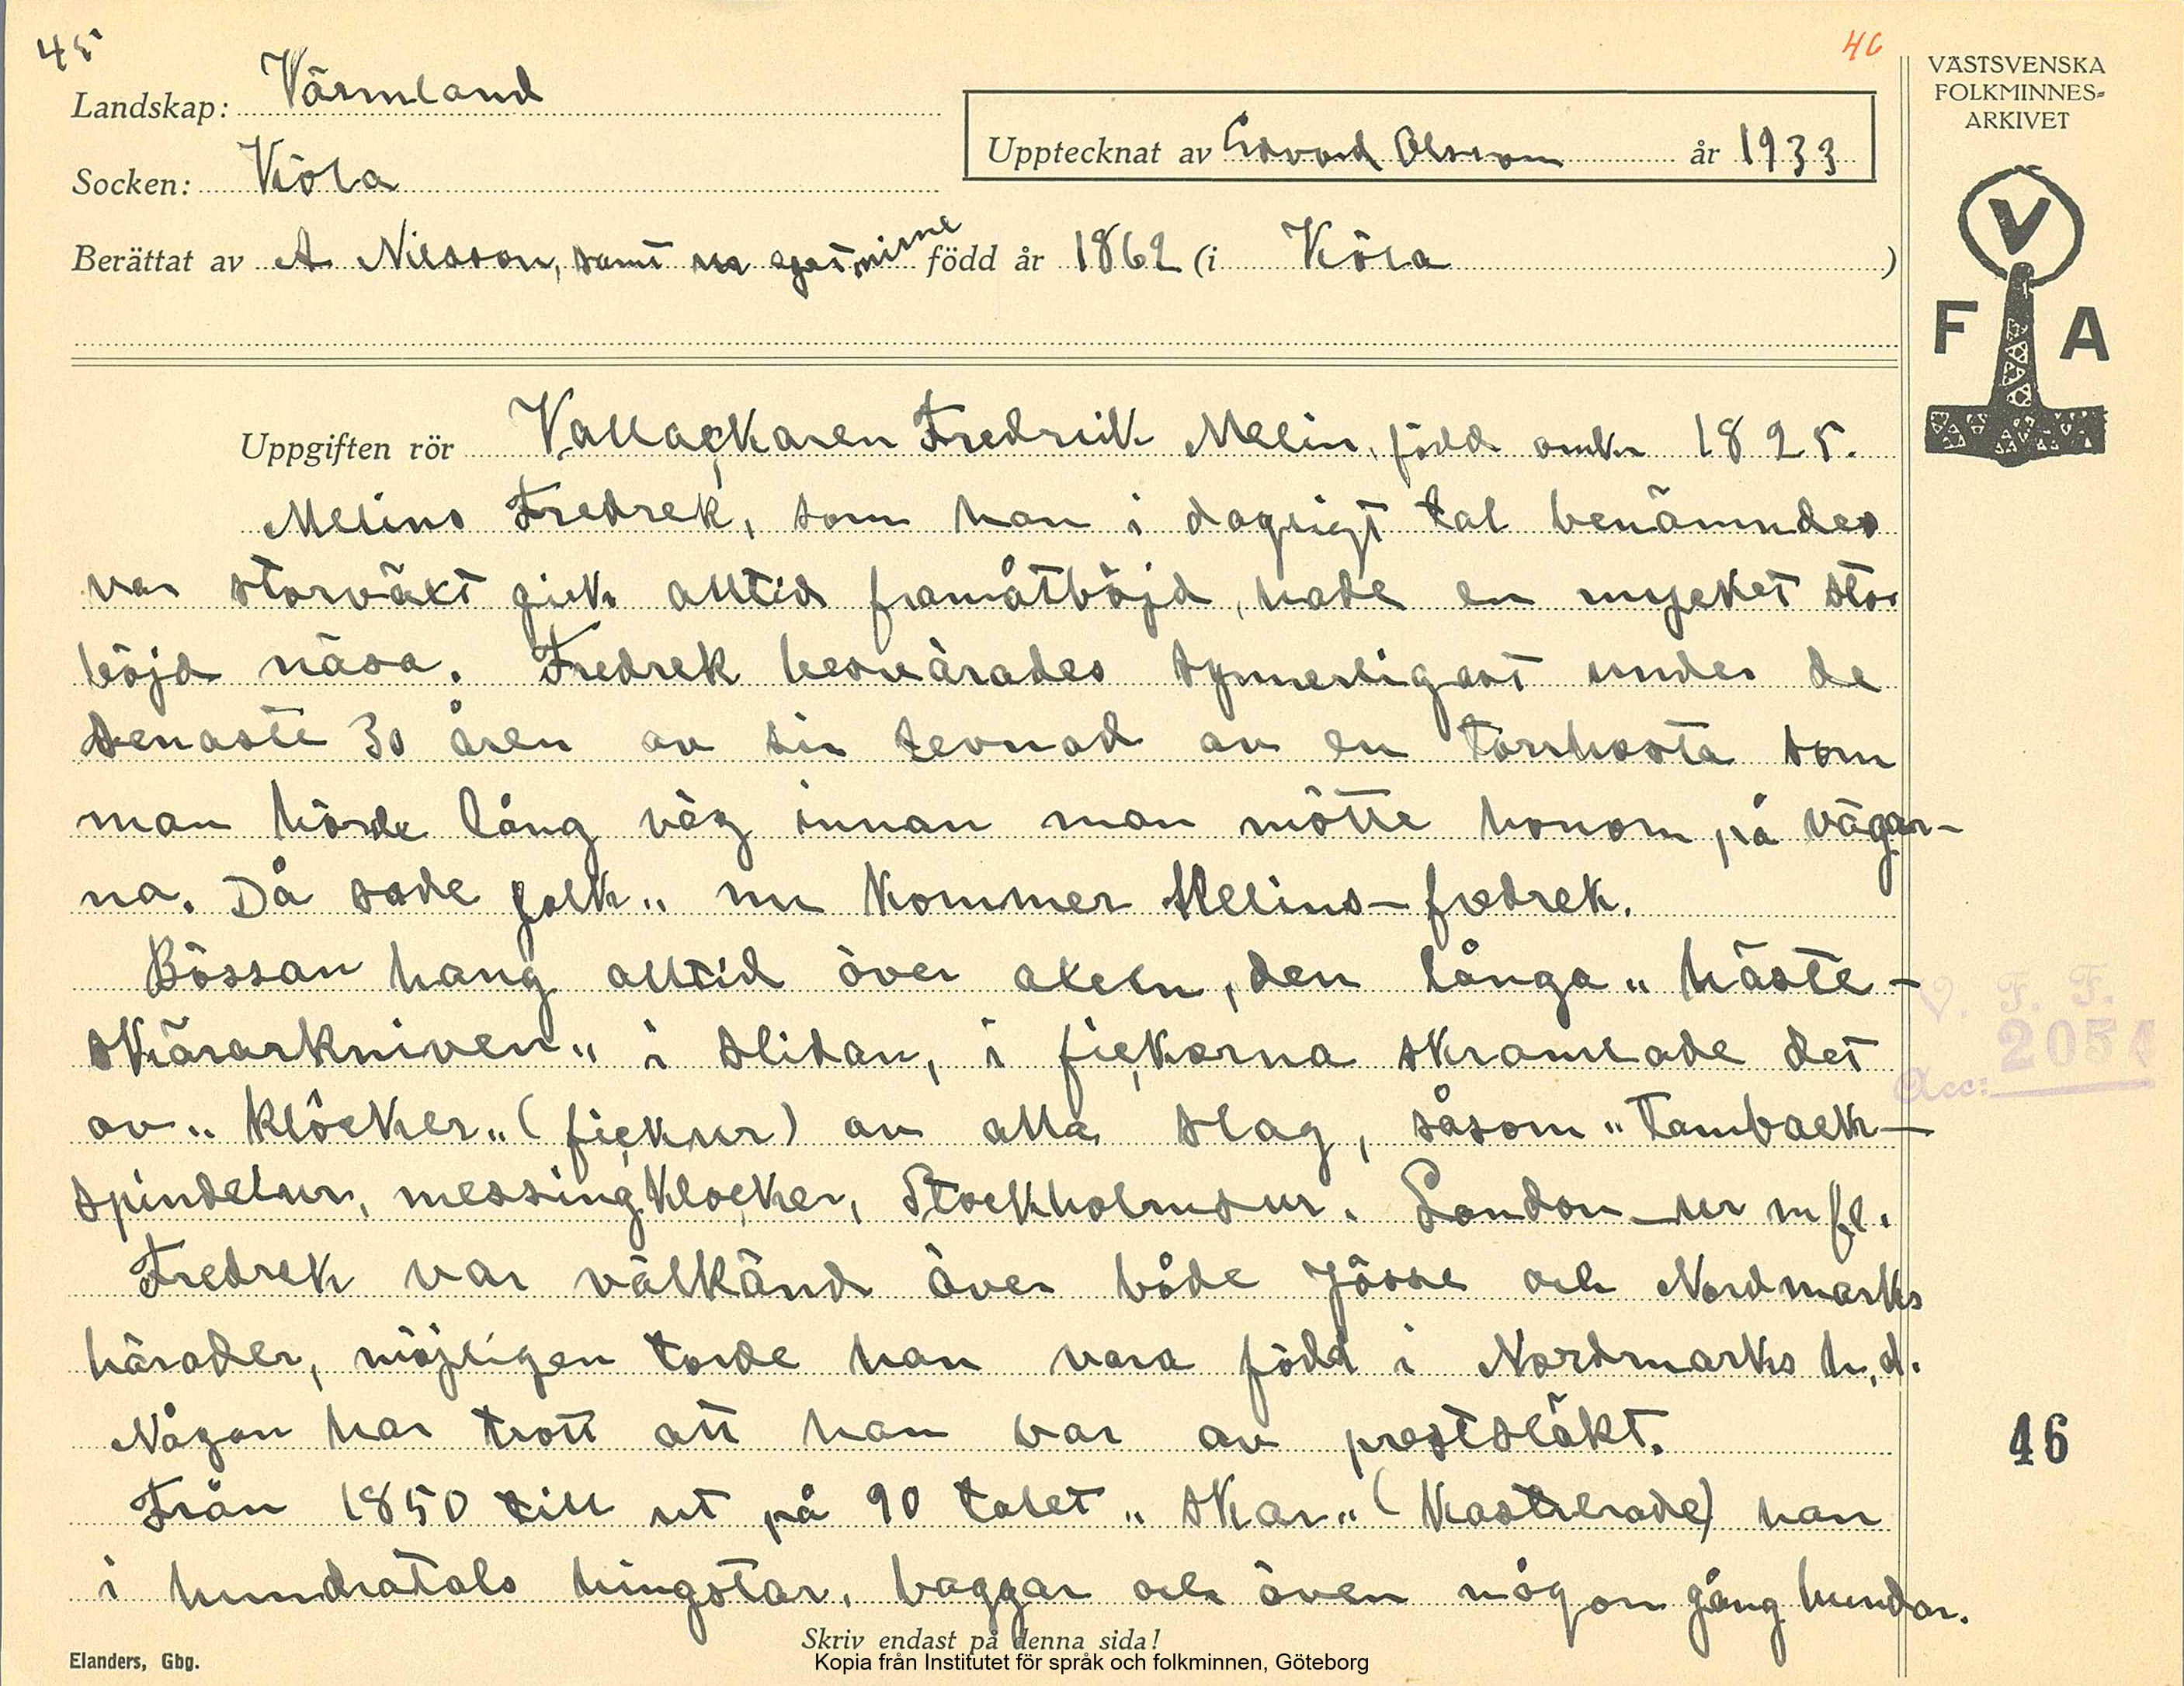 45
46
Landskap: Värmland
Socken: Köla
Upptecknat av Edvard Olsson år 1933
Berättat av A Nilsson, samt ur eget minne född år 1862 (i Köla )
VÄSTSVENSKA
FOLKMINNES=
ARKIVET
V
F A
Uppgiften rör Vallackaren Fredrik Melin, född omkr 1825.
Melins Fredrek, som han i dagligt tal benämndes
var storväxt gick alltid framåtböjd, hade en mycket stor
böjd näsa. Fredrek besvärades synnerligast under de
senaste 30 åren av sin levnad av en torrhosta som
man hörde lång väg innan man mötte honom på vägar-
na. Då sade folk „ nu kommer Melins-fredrek.
Bössan hang alltid över axeln, den långa „ häste-
skärarkniven„ i slidan, i fickorna skramlade det
av „ klöcker„ (fickur) av alla slag, såsom „Tamback-
spindelur, messingklocker, Stockholmsur. London-ur m fl.
Fredrek var välkänd över både Jösse och Nordmarks
härader, möjligen torde han vara född i Nordmarks h.d.
Någon har trott att han var av prestsläkt.
Från 1850 till ut på 90 talet „ skar„ (kastrerade) han
i hundratals hingstar, baggar och även någon gång hundar.
V. F. F.
Acc: 2051
46
Skriv endast på denna sida!
Elanders, Gbg.
Kopia från Institutet för språk och folkminnen, Göteborg